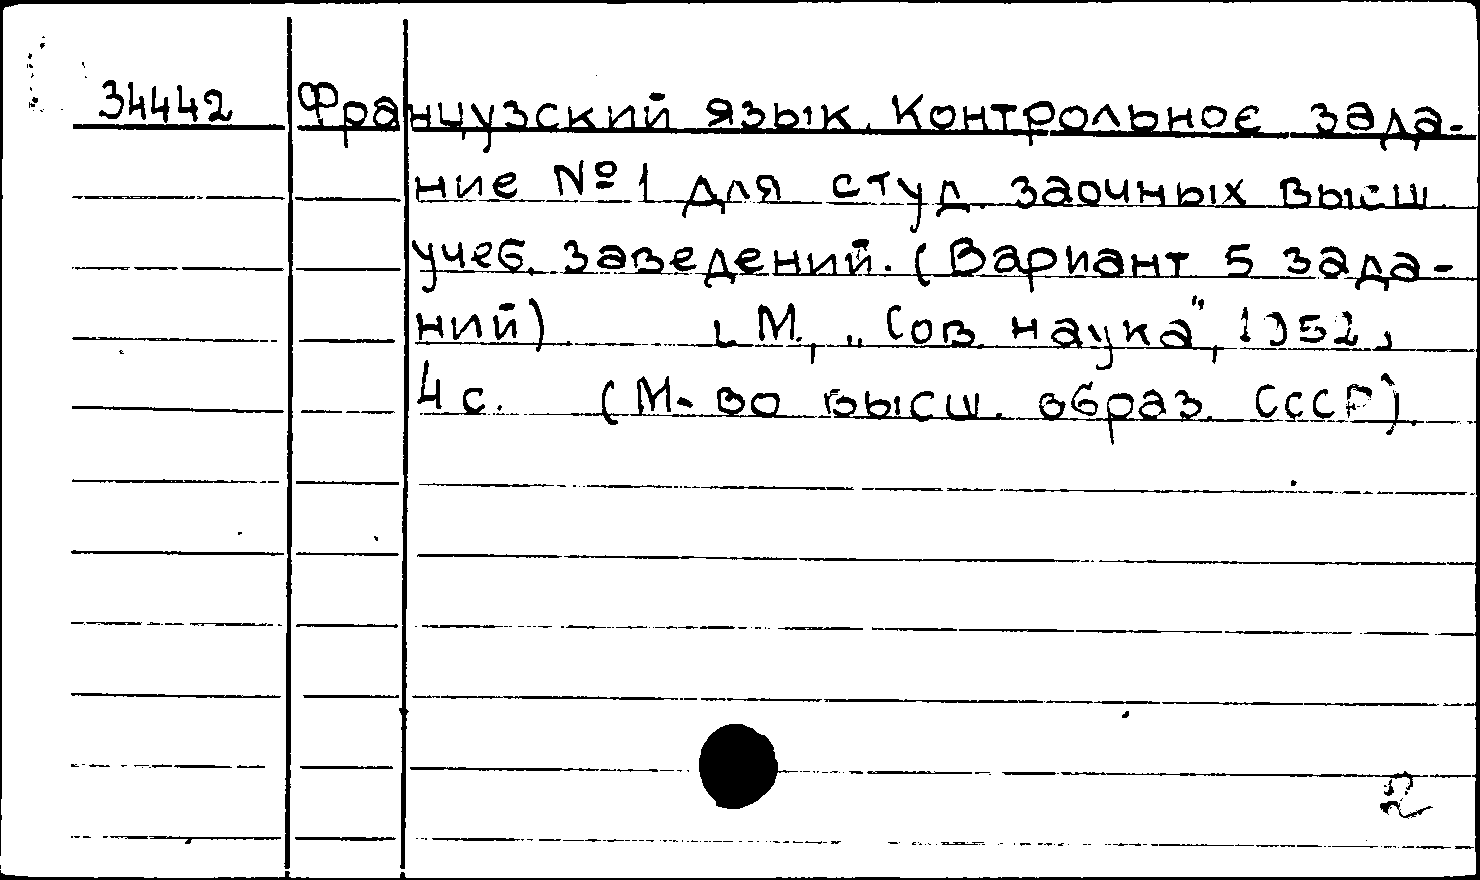 34442 Французский язык. Контрольное зада-
ние № 1 для студ. заочных высш.
учеб. заведений. (Вариант 5 зада-
ний) М., „Сов. наука", 1952,
4 с. (М-во высш. образ. СССР).
2